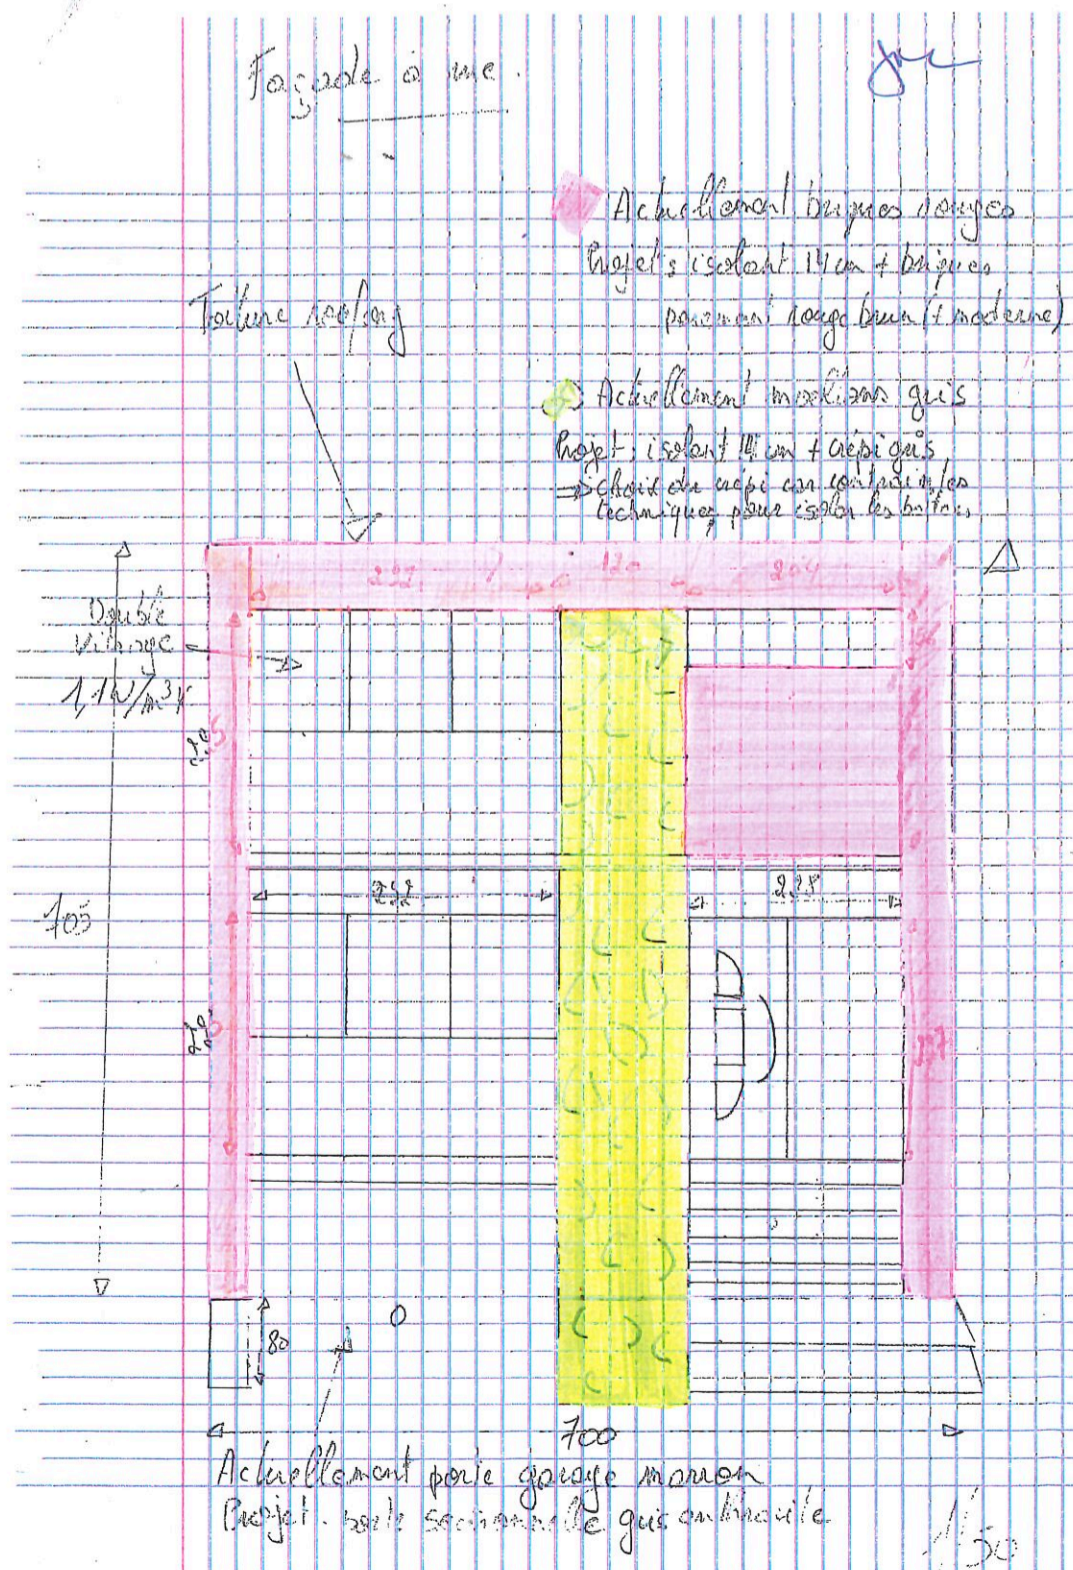 Façade à rue.
Actuellement briques rouges
Projet : isolant 14 cm + briques
parement rouge brun (+ moderne)
Toiture roofing
Actuellement moellons gris
Projet : isolant 14 cm + crépi gris
=> choix du crépi car contraintes
techniques pour isoler les
292
120
204
Double
vitrage
1,1 W/m³K
105
2,28
80
0
700
Actuellement porte garage marron
Projet : porte sectionnelle gris anthracite
1/50